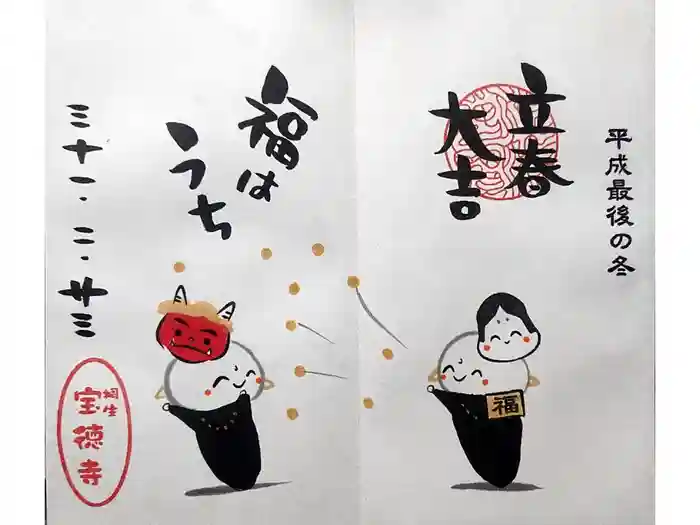 平成最後の冬
立春
大吉
福は
うち
三十一.二.廿三
桐生
宝徳寺
福